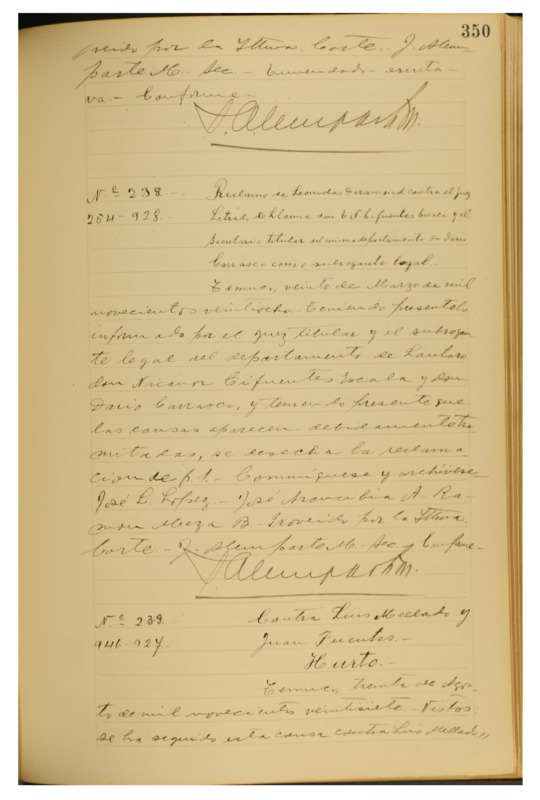 350
veido por la Iltma. Corte. J. Alem-
parte M. Sec. - Enmendado - escrita-
va. - Conforme -
J. Alemparte M.
N.º 238. -
254 - 928. -
Reclamo de Leonidas contra el juez
Letrado de
Secretario titular del mismo departamento don Dario
Carrasco como subrogante legal. -
Temuco, veinte de Marzo de mil
novecientos veintiocho. - Teniendo presente lo
informado por el juez titular y el subrogan-
te legal del departamento de Lautaro
don Nicanor Cifuentes Escala y don
Dario Carrasco, y teniendo presente que
las causas aparecen debidamente tra-
mitadas, se desecha la reclama-
cion de f. 1. - Comuníquese y archívese -
José L. López. - José Arancibia A. Ra-
mon Meza B. - Proveido por la Iltma.
Corte. - J. Alemparte M. Sec. -
J. Alemparte M.
N.º 239.
946 - 927.
Contra Luis Mellado y
Juan Fuentes. -
Hurto. -
Temuco, treinta de Agos-
to de mil novecientos veintisiete. - Vistos:
se ha seguido esta causa contra Luis Mellado,,